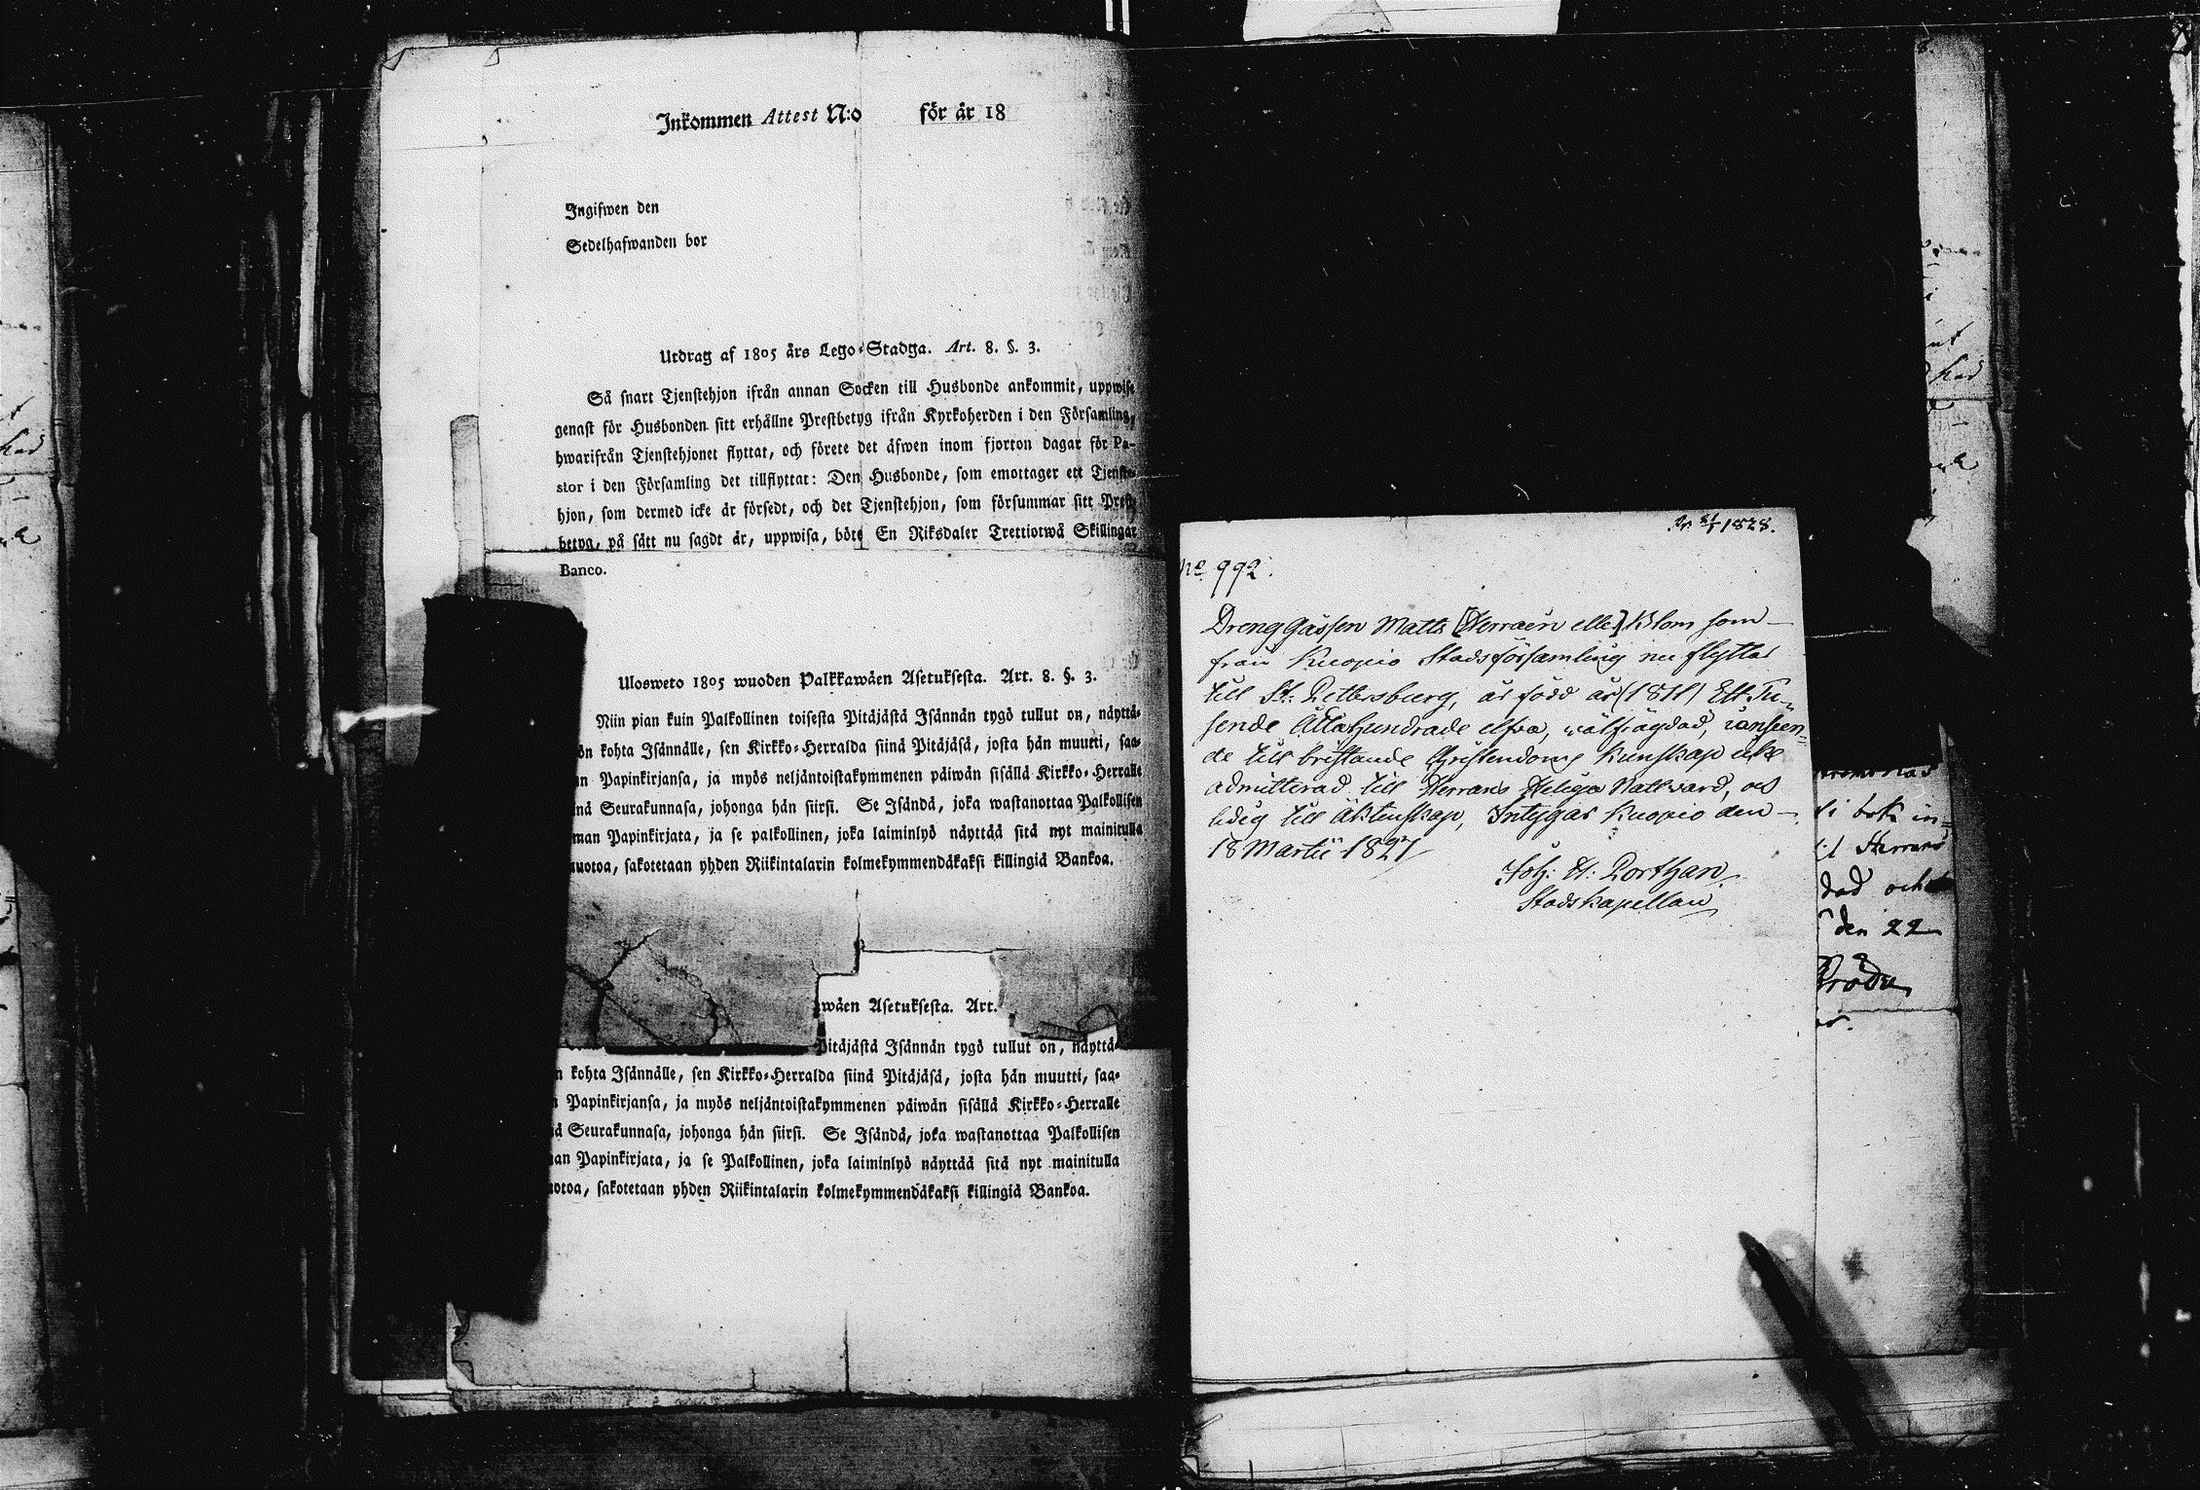 Inkommen Attest N:o för år 18
Ingifwen den
Sedelhafwanden bor
Utdrag af 1805 års Lego-Stadga. Art. 8. §. 3.
Så snart Tjenstehjon ifrån annan Socken till Husbonde ankommit, uppwise
genast för Husbonden sitt erhållne Prestbetyg ifrån Kyrkoherden i den Församling,
hwarifrån Tjenstehjonet flyttat, och förete det äfwen inom fjorton dagar för Pa-
stor i den Församling det tillflyttat: Den Husbonde, som emottager ett Tjenste-
hjon, som dermed icke är försedt, och det Tjenstehjon, som försummar sitt Prest-
betyg, på sätt nu sagdt är, uppwisa, böte En Riksdaler Trettiotwå Skillingar
Banco.
Ulosweto 1805 wuoden Palkkawäen Asetuksesta. Art. 8. §. 3.
Niin pian kuin Palkollinen toisesta Pitäjästä Isännän tygö tullut on, näyttä-
ön kohta Isännälle, sen Kirkko-Herralda siinä Pitäjäsä, josta hän muutti, saa-
n Papinkirjansa, ja myös neljäntoistakymmenen päiwän sisällä Kirkko-Herralle
nä Seurakunnasa, johonga hän siirsi. Se Isändä, joka wastanottaa Palkollisen
man Papinkirjata, ja se palkollinen, joka laiminlyö näyttää sitä nyt mainitulla
uotoa, sakotetaan yhden Riikintalarin kolmekymmendäkaksi killingiä Bankoa.
wäen Asetuksesta. Art.
Pitäjästä Isännän tygö tullut on, näyttä-
n kohta Isännälle, sen Kirkko-Herralda siinä Pitäjäsä, josta hän muutti, saa-
n Papinkirjansa, ja myös neljäntoistakymmenen päiwän sisällä Kirkko-Herralle
ä Seurakunnasa, johonga hän siirsi. Se Isändä, joka wastanottaa Palkollisen
an Papinkirjata, ja se Palkollinen, joka laiminlyö näyttää sitä nyt mainitulla
uotoa, sakotetaan yhden Riikintalarin kolmekymmendäkaksi killingiä Bankoa.
1828.
no 992.
Dreng Gåssen Matts [Herraèn elle] Blom som
från Kuopio Stadsförsamling nu flyttar
till St: Petersburg, är född år (1811) Ett Tu-
sende Åttahundrade elfva, wälfrägdad, i anseen-
de till bristande Christendoms Kunskap icke
admitterad till Herrans Heliga Nattward, och
ledig till äktenskap, Intygas Kuopio den
18 Martii 1827
Joh: H: Porthan,
Stadskapellan
i bok in=
til Herrans
dad och
den 22